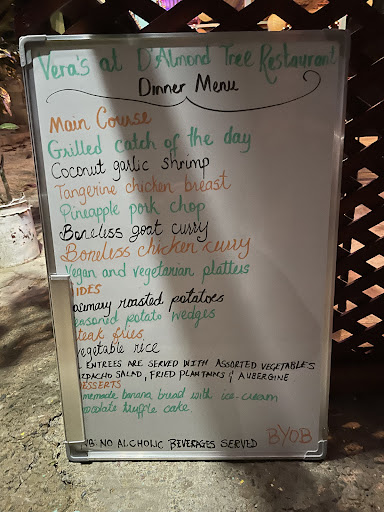 Vera's at D'Almond Tree Restaurant
Dinner Menu
Main Course
Grilled catch of the day
Coconut garlic shrimp
Tangerine chicken breast
Pineapple pork chop
Boneless goat curry
Boneless chicken curry
Vegan and vegetarian platters
IDES
osemary roasted potatoes
easoned potato wedges
teak fries
vegetable rice
L ENTREES ARE SERVED WITH ASSORTED VEGETABLES
ZPACHO SALAD, FRIED PLANTAINS & AUBERGINE
DESSERTS
omemade banana bread with ice-cream
hocolate truffle cake.
NB: NO ALCHOLIC BEVERAGES SERVED
BYOB